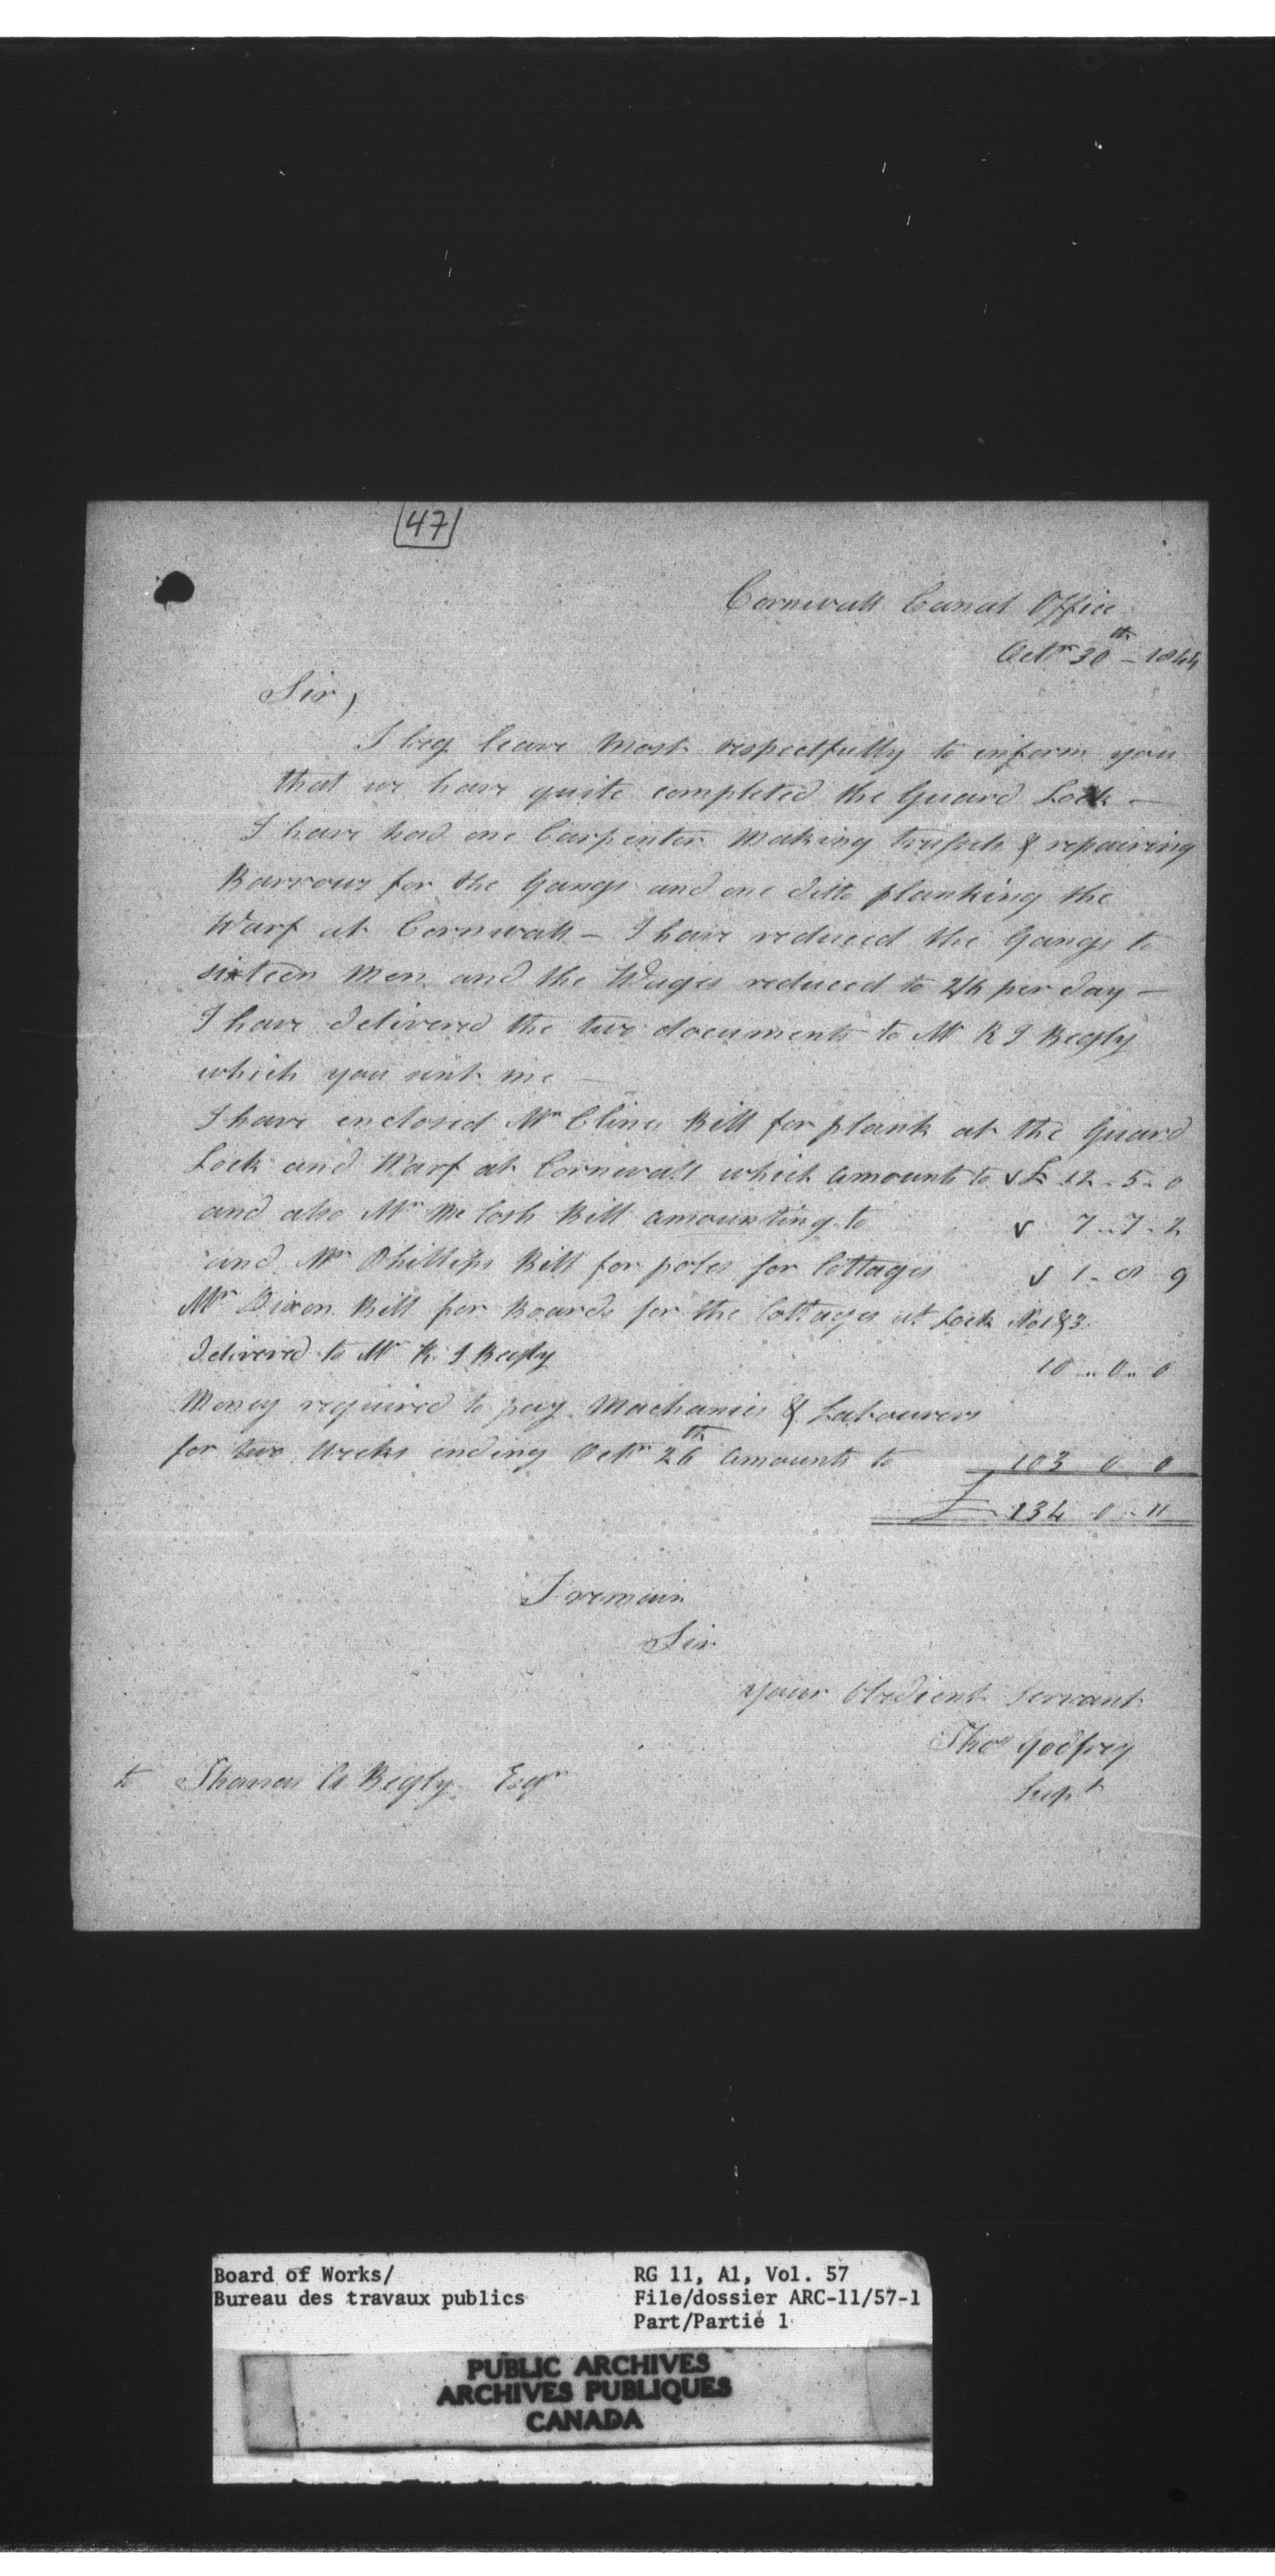 47
Cornwall Canal Office
Octr 30th – 1844
Sir,
I beg leave most respectfully to inform you
that we have quite completed the Guard Lock –
I have had one Carpenter making & repairing
Barrows for the Gangs and one ditto planking the
Warf at Cornwall – I have reduced the Gangs to
sixteen Men and the Wages reduced to 2/6 per day –
I have delivered the two documents to Mr R I Begly
which you sent me –
I have enclosed Mr Clines Bill for plank at the Guard
Lock and Warf at Cornwall which amounts to £ 12 . 5 . 0
and also Mr McCosh Bill amounting to 7 . 7 . 2
and Mr Phillips Bill for poles for Cottages 1 . 8 9
Mr Dixon Bill for Boards for the Cottages at Lock No 1 & 3
delivered to Mr R. I Begly 10 .. 0 .. 0
Money required to pay Machanics & Labourers
for two weeks ending Octr 26th amounts to 103 0 0
£ 134 0 .. 11
I remain
Sir
your Obedient Servant
Thos Godfrey
Supt
to Thomas A Begly Esqr
Board of Works/
Bureau des travaux publics
RG 11, A1, Vol. 57
File/dossier ARC-11/57-1
Part/Partie 1
PUBLIC ARCHIVES
ARCHIVES PUBLIQUES
CANADA